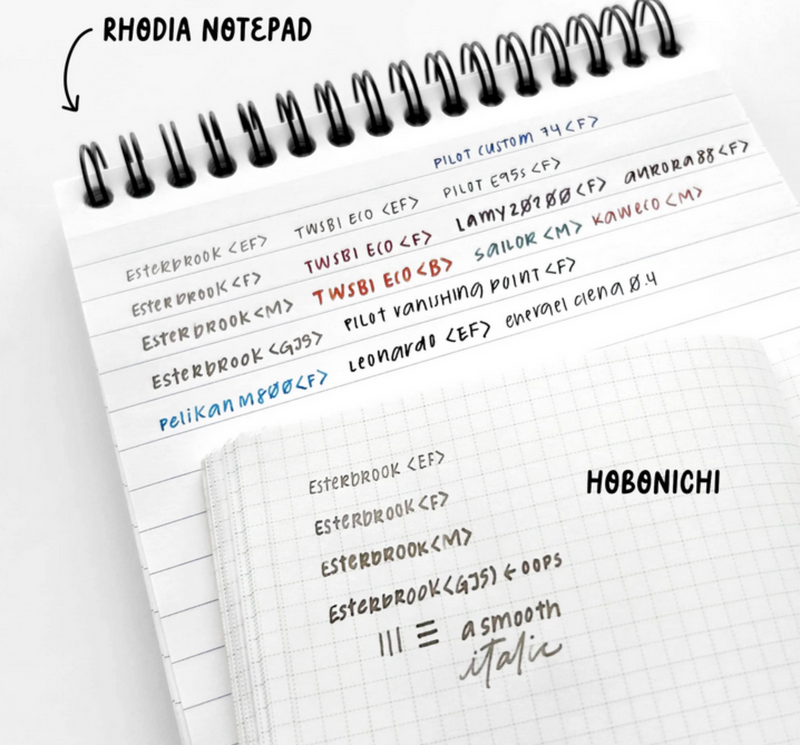 RHODIA NOTEPAD
PILOT CUSTOM 74 <F>
Esterbrook <EF> TWSBI ECO <EF> PILOT E95s <F>
Esterbrook <F> TWSBI ECO <F> Lamy 2000 <F> aurora 88 <F>
Esterbrook <M> TWSBI ECO <B> Sailor <M> Kaweco <M>
Esterbrook <GJS> Pilot Vanishing Point <F>
Pelikan M800 <F> Leonardo <EF> energel clena 0.4
HOBONICHI
Esterbrook <EF>
Esterbrook <F>
Esterbrook <M>
Esterbrook <GJS) ← oops
||| ☰ a smooth
italic